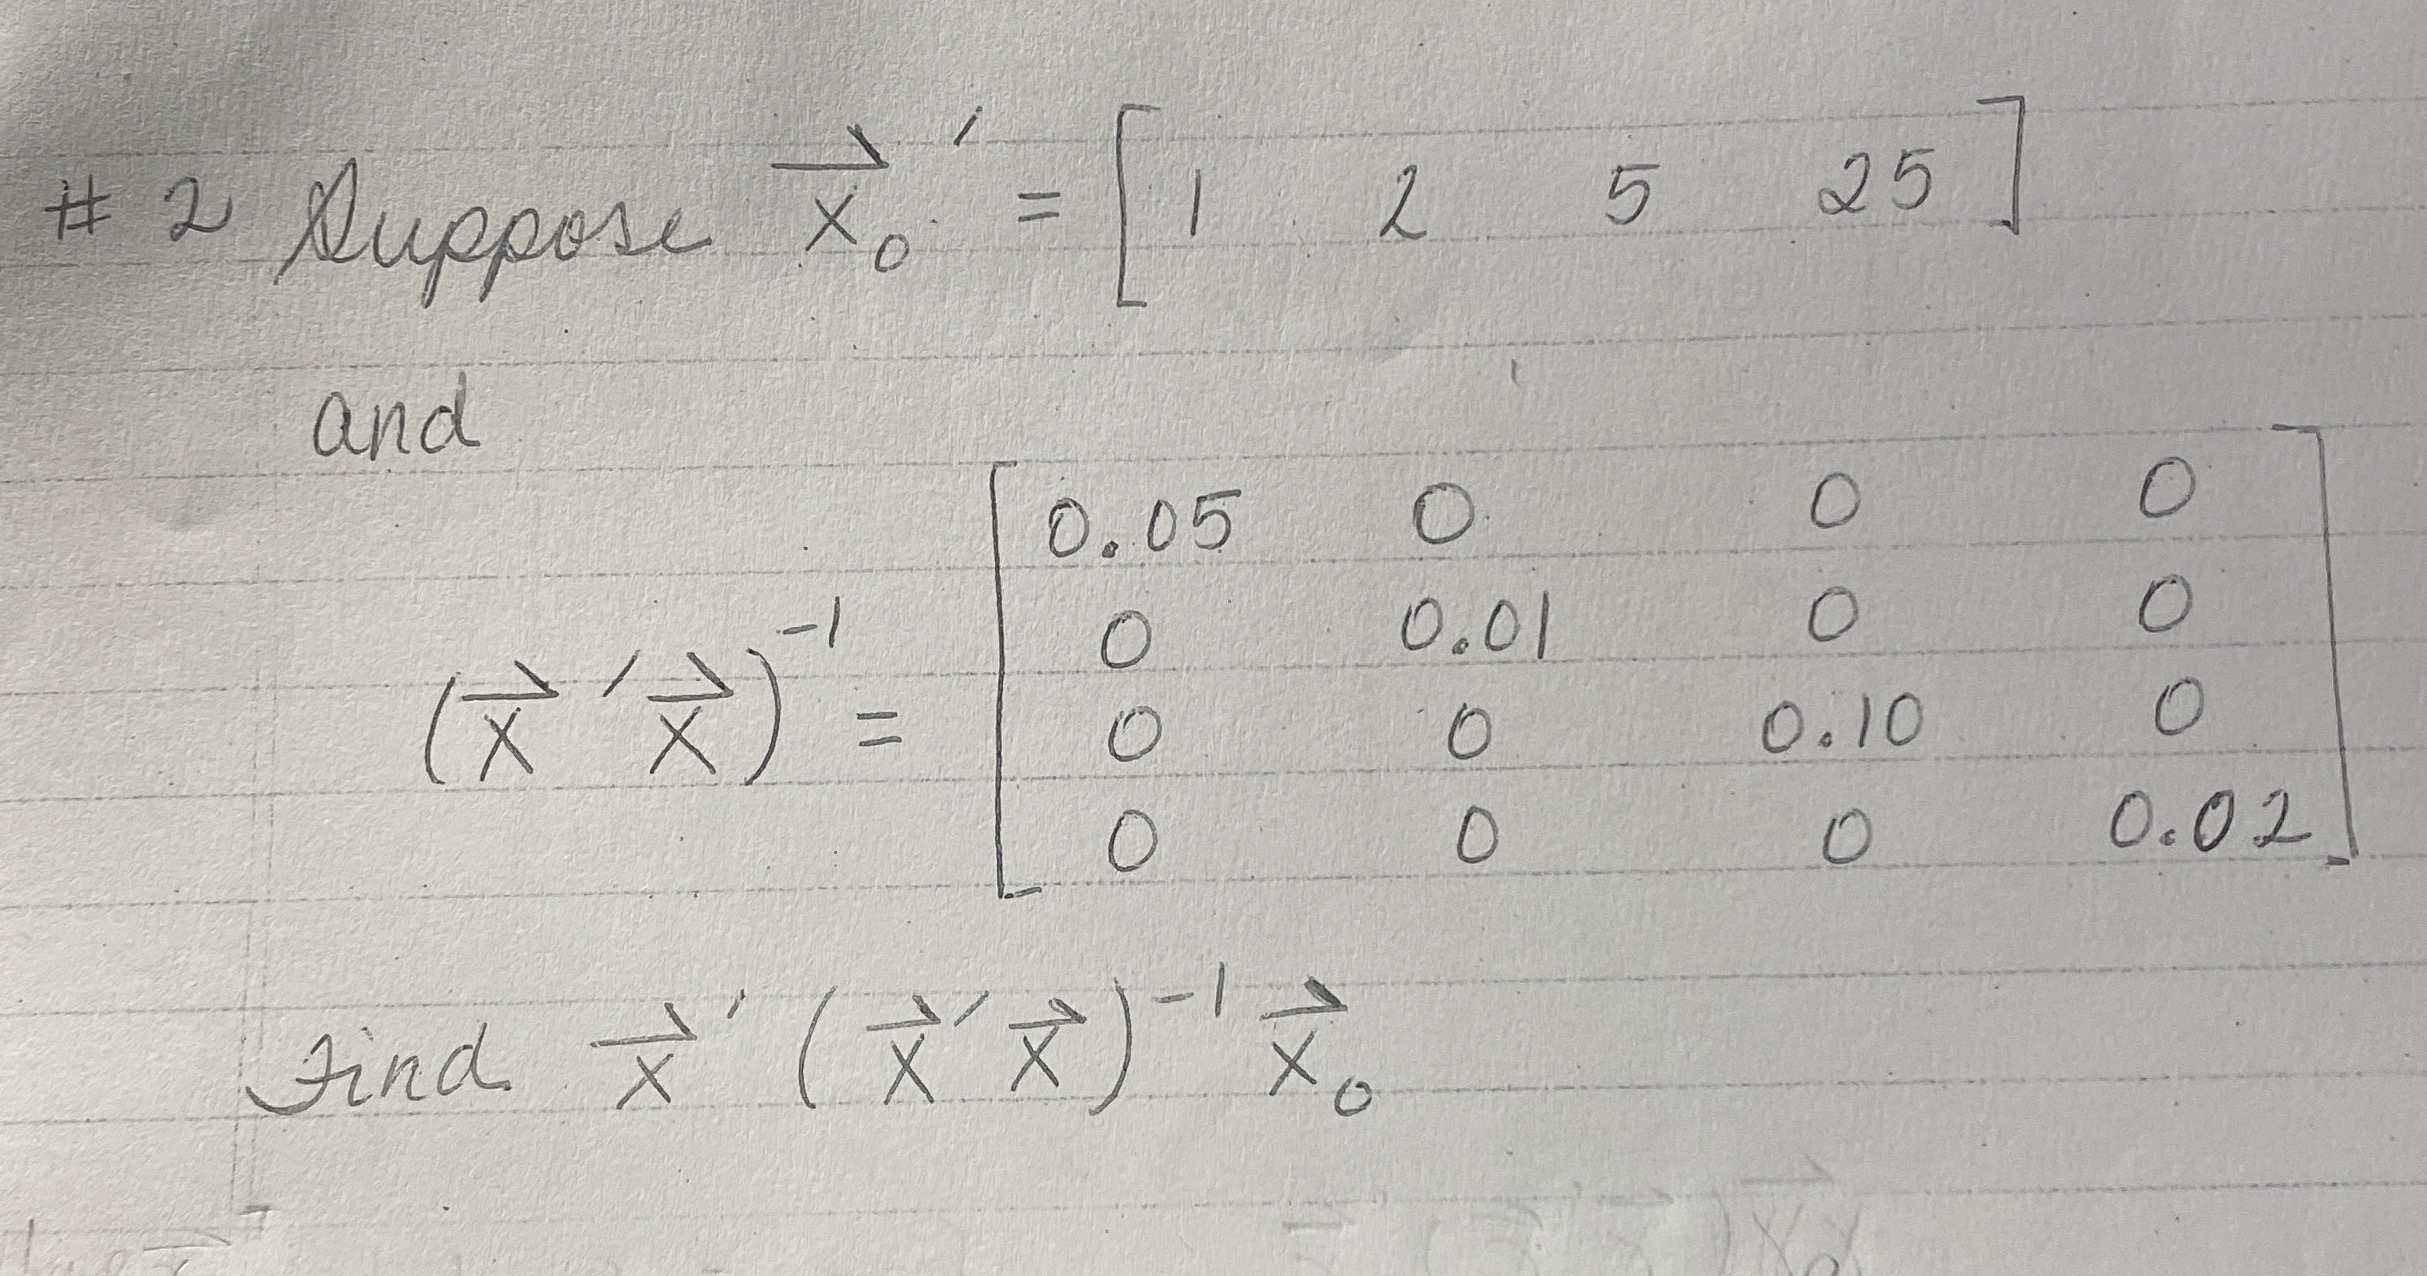 # 2 Suppose x⃗₀′ = [ 1 2 5 25 ]
and
(x⃗′x⃗)⁻¹ = [ 0.05 0 0 0
0 0.01 0 0
0 0 0.10 0
0 0 0 0.02 ]
Find x⃗′(x⃗′x⃗)⁻¹x⃗₀